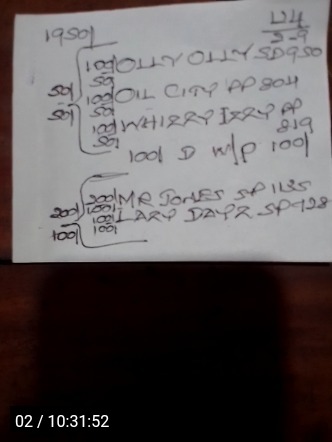 1950/ U4
5-9
100/ OLLY OLLY SD 950
50/
50/ 100/ OIL CITY PP 804
50/ 50/
100/ WHIZZY IZZY PP
50/ 819
100/ D W/P 100/
200/ MR JONES SP 1135
200/ 100/ LAZY DAYZ SP 928
100/ 100/
02 / 10:31:52